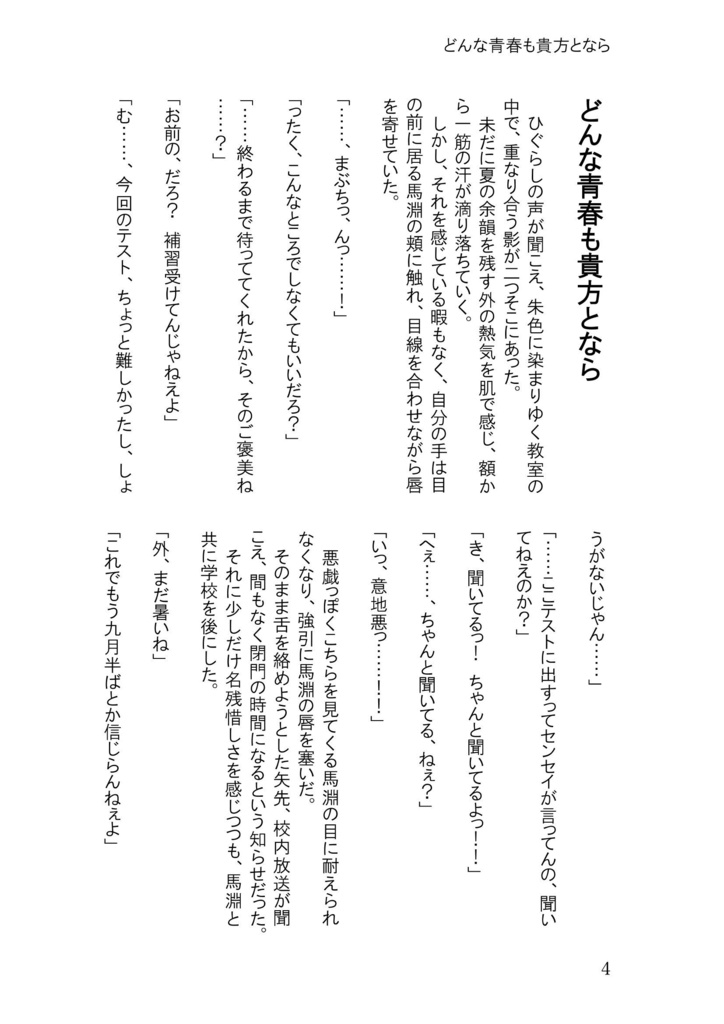 どんな青春も貴方となら
どんな青春も貴方となら
ひぐらしの声が聞こえ、朱色に染まりゆく教室の
中で、重なり合う影が二つそこにあった。
未だに夏の余韻を残す外の熱気を肌で感じ、額か
ら一筋の汗が滴り落ちていく。
しかし、それを感じている暇もなく、自分の手は目
の前に居る馬淵の頬に触れ、目線を合わせながら唇
を寄せていた。
「……、まぶちっ、んっ……！」
「ったく、こんなところでしなくてもいいだろ？」
「……終わるまで待っててくれたから、そのご褒美ね
……？」
「お前の、だろ？　補習受けてんじゃねえよ」
「む……、今回のテスト、ちょっと難しかったし、しょ
うがないじゃん……」
「……ここテストに出すってセンセイが言ってんの、聞い
てねえのか？」
「き、聞いてるっ！　ちゃんと聞いてるよっ！！」
「へぇ……、ちゃんと聞いてる、ねぇ？」
「いっ、意地悪っ……！！」
悪戯っぽくこちらを見てくる馬淵の目に耐えられ
なくなり、強引に馬淵の唇を塞いだ。
そのまま舌を絡めようとした矢先、校内放送が聞
こえ、間もなく閉門の時間になるという知らせだった。
それに少しだけ名残惜しさを感じつつも、馬淵と
共に学校を後にした。
「外、まだ暑いね」
「これでもう九月半ばとか信じらんねぇよ」
4